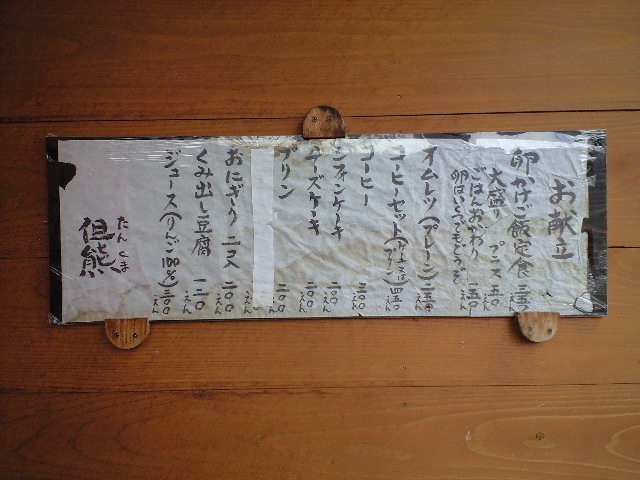 お献立
卵かけご飯定食 三五〇えん
大盛り プラス 五〇えん
ごはんおかわり 一五〇えん
卵はいくつでもどうぞ
オムレツ(プレーン) 二五〇えん
コーヒーセット 四五〇えん
コーヒー 三〇〇えん
シフォンケーキ 二〇〇えん
チーズケーキ 二〇〇えん
プリン 二〇〇えん
おにぎり 二ヶ 二〇〇えん
くみ出し豆腐 一二〇えん
ジュース(りんご100%) 二〇〇えん
たんくま
但熊